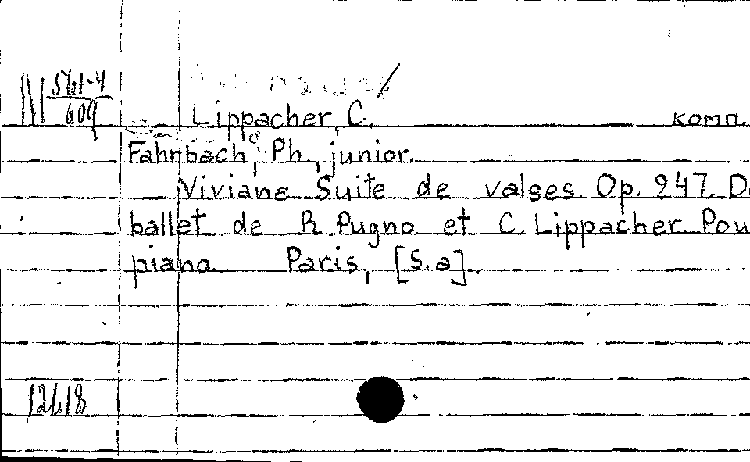 561-4
609
Lippacher, C. комп.
Fahrbach, Ph., junior.
Viviane Suite de valses. Op. 247. D
ballet de R. Pugno et C. Lippacher. Pou
piano. Paris, [S.a].
12618